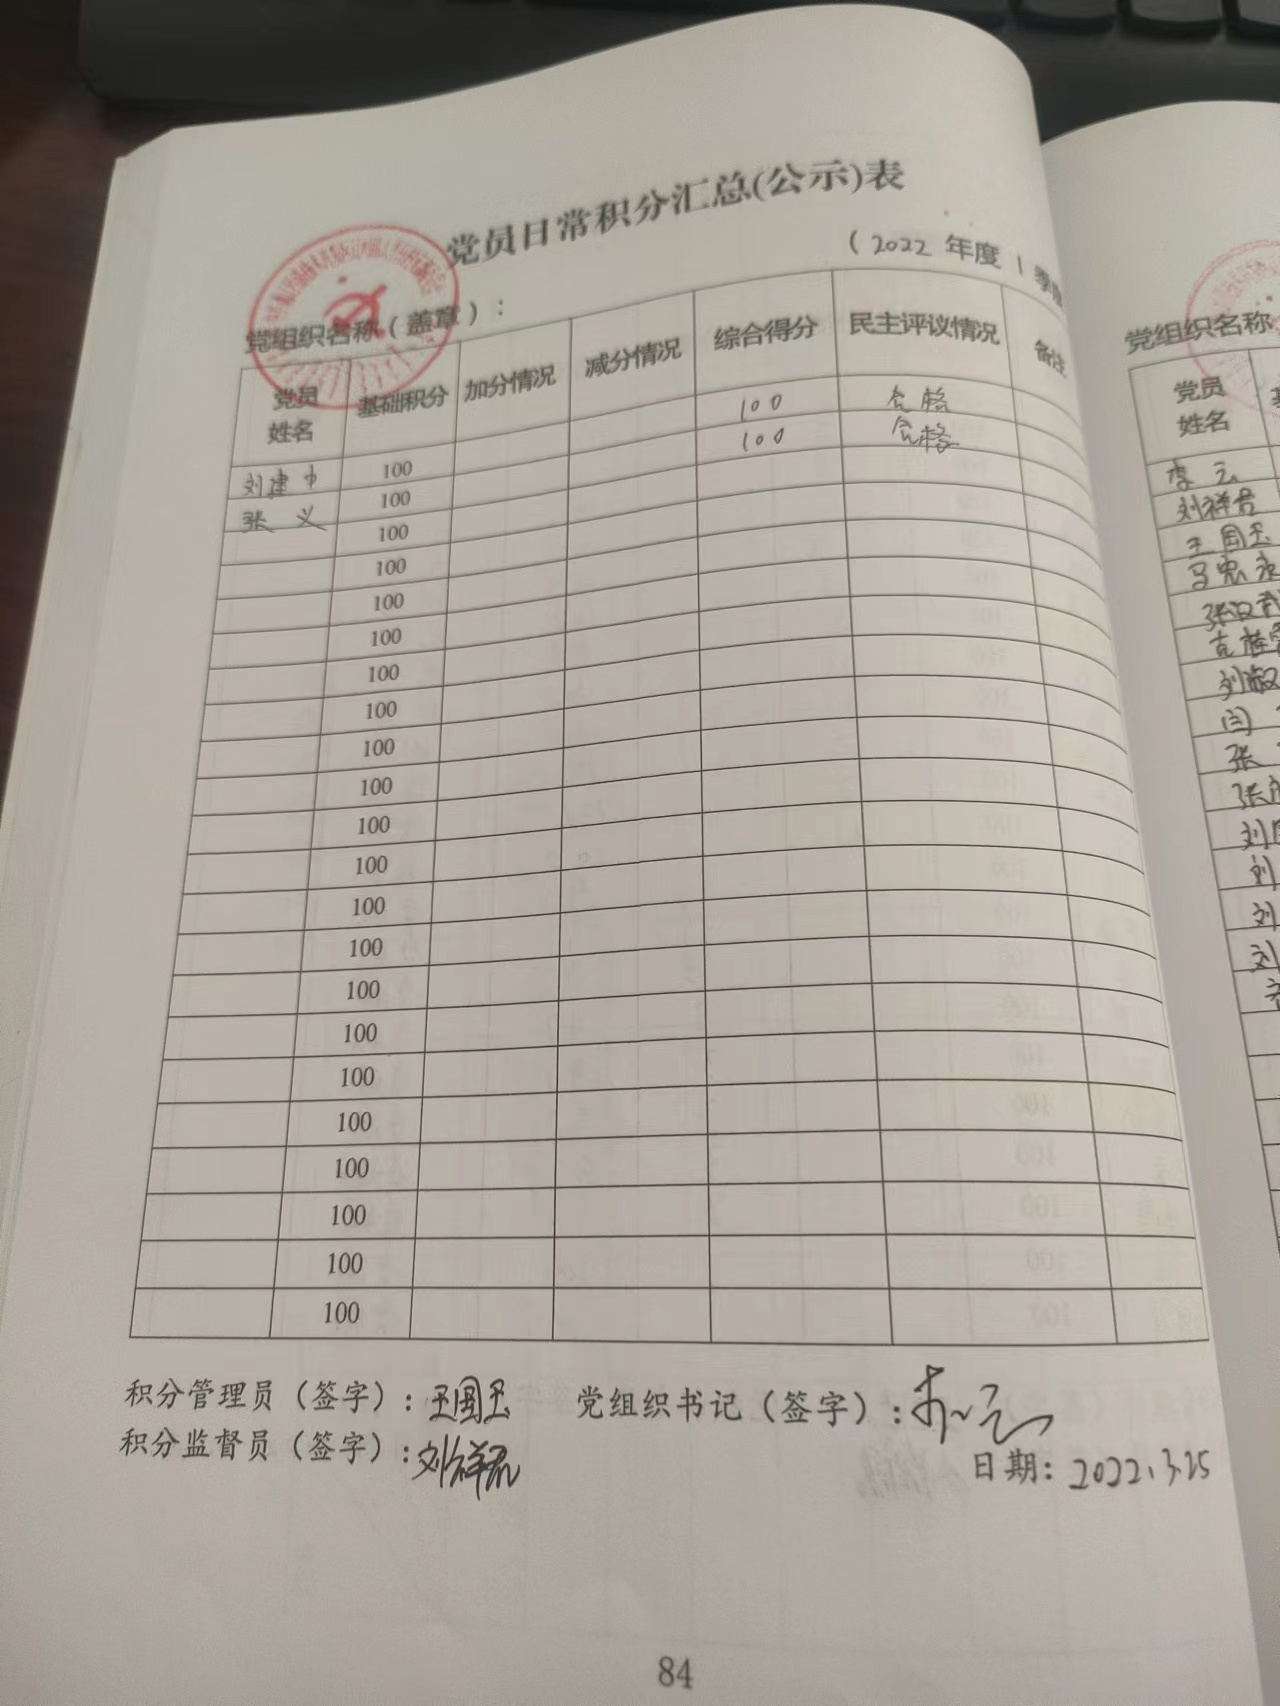 党员日常积分汇总(公示)表
(2022 年度 1 季度
党组织名称(盖章):
党员姓名 基础积分 加分情况 减分情况 综合得分 民主评议情况 备注
刘建中 100 100 合格
张义 100 100 合格
100
100
100
100
100
100
100
100
100
100
100
100
100
100
100
100
100
100
100
100
积分管理员(签字):王国玉 党组织书记(签字):李云
积分监督员(签字):刘祥君
日期:2022.3.25
84
党组织名称
党员
姓名
李云
刘祥君
王国玉
马忠
张汉
刘
闫
张
张
刘
刘
刘
刘